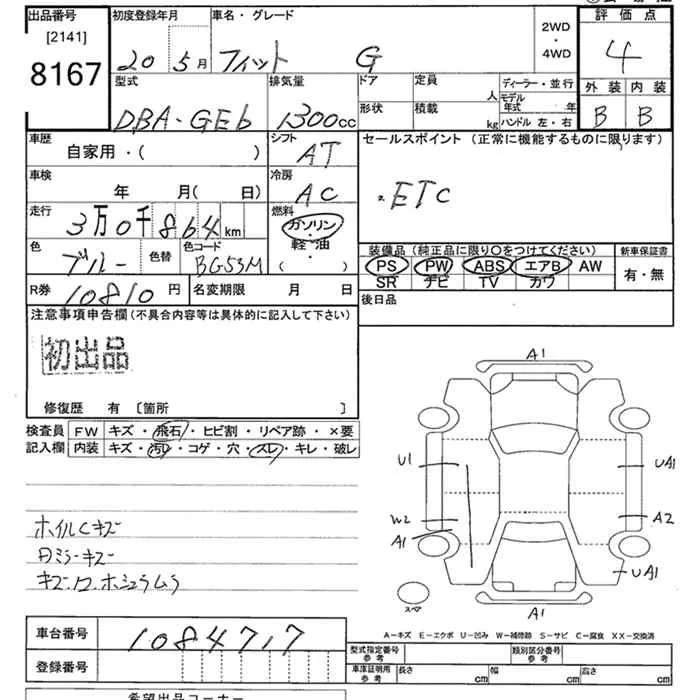 出品番号 初度登録年月 車名・グレード 評価点
[2141] 20 5月 フィット G 2WD・4WD 4
8167
型式 排気量 ドア 定員 人 ディーラー・並行 外装 内装
DBA-GE6 1300cc 形状 積載 kg モデル年式 年 ハンドル 左・右 B B
車歴 シフト セールスポイント (正常に機能するものに限ります)
自家用・( ) AT
車検 冷房 ETC
年 月( 日) AC
走行 燃料
3万0千864km ガソリン・軽・油
色 色替 色コード ( ・ ) 装備品(純正品に限り○をつけてください) 新車保証書
ブルー BG53M PS PW ABS エアB AW 有・無
SR ナビ TV カワ
R券 10810円 名変期限 月 日 後日品
注意事項申告欄(不具合内容等は具体的に記入して下さい)
初出品
A1
修復歴 有 〔箇所 〕
検査員 FW キズ・飛石・ヒビ割・リペア跡・×要
記入欄 内装 キズ・汚レ・コゲ・穴・スレ・キレ・破レ
U1 UA1
W2 A2
A1
ホイルCキズ
ミラーキズ
UA1
スペア
A1
A-キズ E-エクボ U-凹み W-補修跡 S-サビ C-腐食 XX-交換済
車台番号 1084717
型式指定番号 参考 類別区分番号 参考
登録番号 車庫証明用 参考 長さ cm 幅 cm 高さ cm
希望出品コーナー